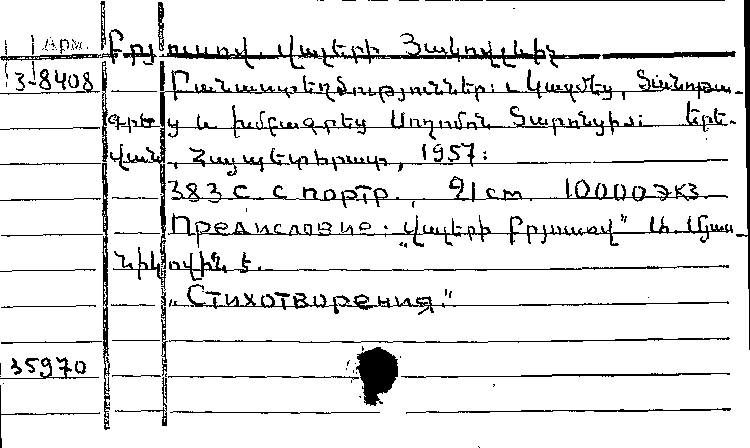 Арм. Բրյուսով. Վալերի Յակովլևիչ
3-8408 Բանաստեղծություններ: Կազմեց, ծանոթա-
գրեց և խմբագրեց Սողոմոն Տարոնցին: Երե-
վան, Հայպետհրատ, 1957:
383 с. с портр., 21 cm. 10000 экз.
Предисловие: „Վալերի Բրյուսով" Ա. Մյաս-
նիկովին է.
„Стихотворения."
35970